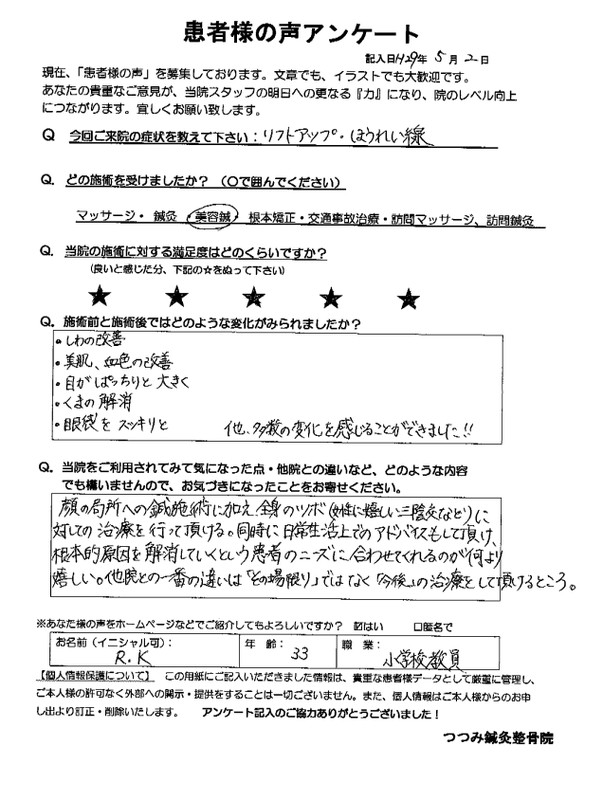 患者様の声アンケート
記入日H29年 5月 2日
現在、「患者様の声」を募集しております。文章でも、イラストでも大歓迎です。
あなたの貴重なご意見が、当院スタッフの明日への更なる『力』になり、院のレベル向上
につながります。宜しくお願い致します。
Q 今回ご来院の症状を教えて下さい:リフトアップ・ほうれい線
Q. どの施術を受けましたか? (〇で囲んでください)
マッサージ・ 鍼灸 ・美容鍼・ 根本矯正・交通事故治療・訪問マッサージ、訪問鍼灸
Q. 当院の施術に対する満足度はどのくらいですか?
(良いと感じた分、下記の☆をぬって下さい)
★ ★ ★ ★ ★
Q. 施術前と施術後ではどのような変化がみられましたか?
・しわの改善
・美肌、血色の改善
・目がぱっちりと大きく
・くまの解消
・眼袋をスッキリと 他、多数の変化を感じることができました!!
Q. 当院をご利用されてみて気になった点・他院との違いなど、どのような内容
でも構いませんので、お気づきになったことをお寄せください。
顔の局所への鍼施術に加え、全身のツボ(女性に嬉しい三陰交など)に
対しての治療を行って頂ける。同時に日常生活上でのアドバイスもして頂け、
根本的原因を解消していくという患者のニーズに合わせてくれるのが何より
嬉しい。他院との一番の違いは「その場限り」ではなく「今後」の治療をして頂けるところ。
※あなた様の声をホームページなどでご紹介してもよろしいですか? ☑はい □匿名で
お名前(イニシャル可): R.K
年 齢: 33
職 業: 小学校教員
【個人情報保護について】 この用紙にご記入いただきました情報は、貴重な患者様データとして厳重に管理し、
ご本人様の許可なく外部への開示・提供をすることは一切ございません。また、個人情報はご本人様からのお申
し出より訂正・削除いたします。 アンケート記入のご協力ありがとうございました!
つつみ鍼灸整骨院